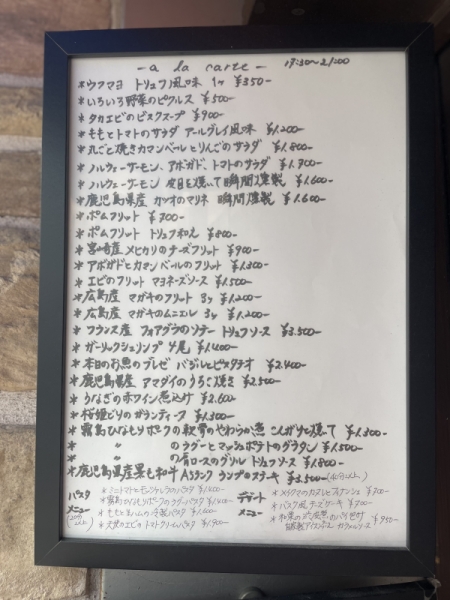 - a la carte - 17:30~21:00
*ウフマヨ トリュフ風味 1ヶ ¥350-
*いろいろ野菜のピクルス ¥500-
*タカエビのビスクスープ ¥900-
*ももとトマトのサラダ アールグレイ風味 ¥1.200-
*丸ごと焼きカマンベールとりんごのサラダ ¥1.800-
*ノルウェーサーモン、アボガド、トマトのサラダ ¥1.700-
*ノルウェーサーモン 皮目を焼いて瞬間燻製 ¥1.600-
*鹿児島県産 カツオのマリネ 瞬間燻製 ¥1.600-
*ポムフリット ¥700-
*ポムフリット トリュフ和え ¥800-
*宮崎産メヒカリのチーズフリット ¥900-
*アボガドとカマンベールのフリット ¥1.300-
*エビのフリット マヨネーズソース ¥1.500-
*広島産 マガキのフリット 3ヶ ¥1.200-
*広島産 マガキのムニエル 3ヶ ¥1.200-
*フランス産 フォアグラのソテー トリュフソース ¥3.500-
*ガーリックシュリンプ 4尾 ¥1.400-
*本日のお魚のブレゼ バジルとピスタチオ ¥2.400-
*鹿児島県産 アマダイのうろこ焼き ¥2.500-
*うなぎの赤ワイン煮込み ¥2.600-
*桜姫どりのガランティーヌ ¥1.300-
*霧島ひなもりポークの軟骨のやわらか煮 こんがりと焼いて ¥1.300-
* 〃 のラグーとマッシュポテトのグラタン ¥1.500-
* 〃 の肩ロースのグリル トリュフソース ¥1.800-
*鹿児島県産黒毛和牛 A5ランク ランプのステーキ ¥3.500-
パスタ メニュー
*ミニトマトとモッツァレラのパスタ ¥1.400-
*霧島ひなもりポークのラグーパスタ ¥1.400-
*ももと生ハムの冷製パスタ ¥1.600-
*天使のエビのトマトクリームパスタ ¥1.900-
デザート メニュー
¥700-
*バスク風チーズケーキ ¥700-
¥950-